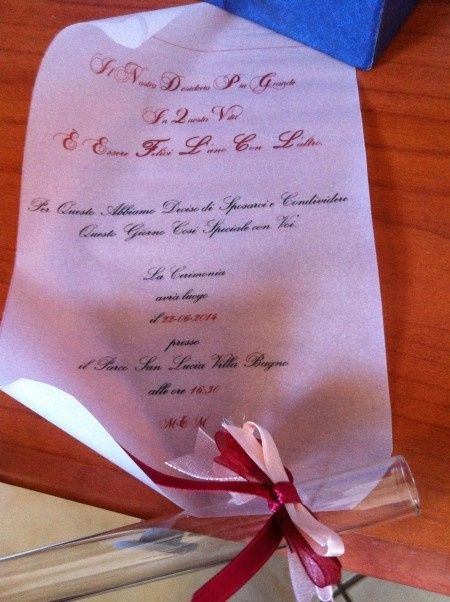 Il Nostro Desiderio Più Grande
In Questa Vita
È Essere Felici L'uno Con L'altro.
Per Questo Abbiamo Deciso di Sposarci e Condividere
Questo Giorno Così Speciale con Voi.
La Cerimonia
avrà luogo
il 22-06-2014
presso
il Parco San Lucia Villa Bagno
alle ore 16:30
M & M